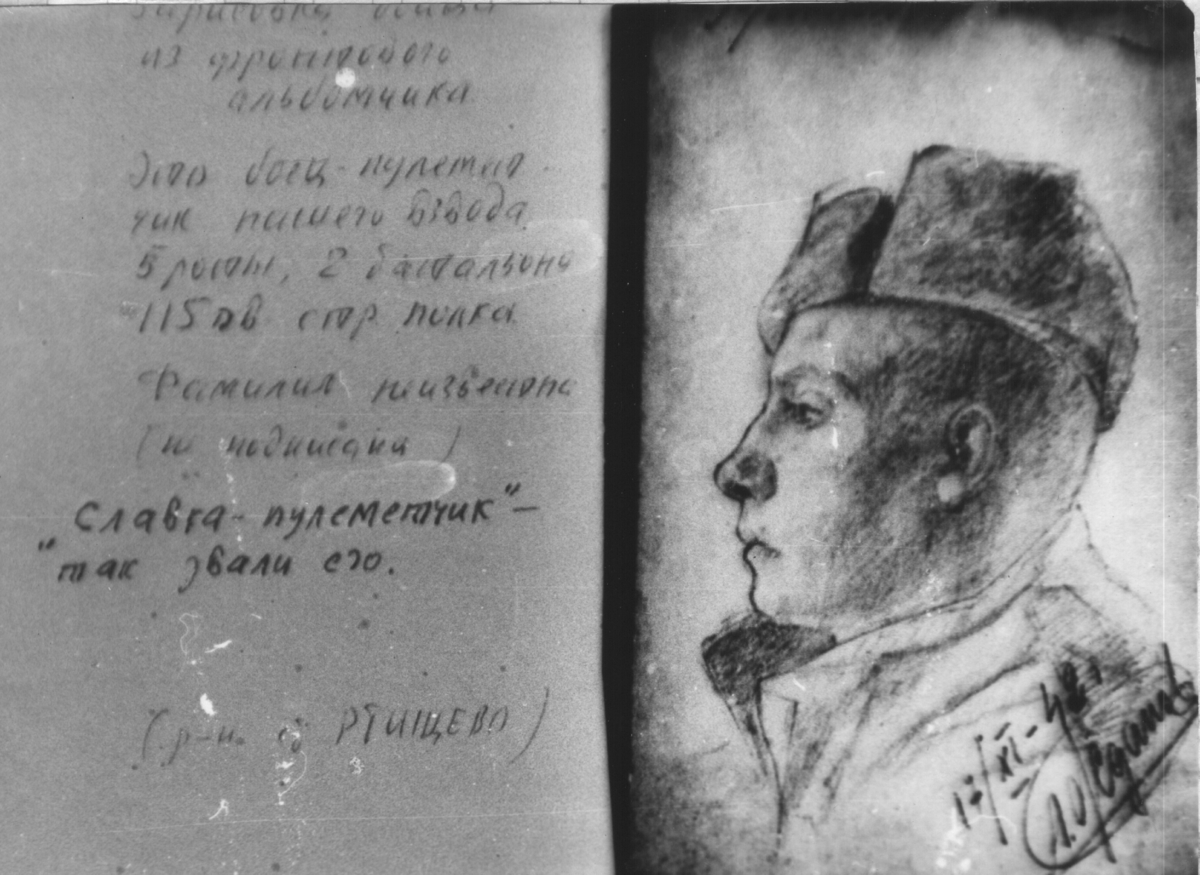 Зарисовка бойца
из фронтового
альбомчика
Это боец-пулемет-
чик нашего взвода
5 роты, 2 батальона
115 стр полка
Фамилия неизвестна
(не подписана)
"Славка-пулеметчик" –
так звали его.
(р-н РТИЩЕВО)
17/XI-42